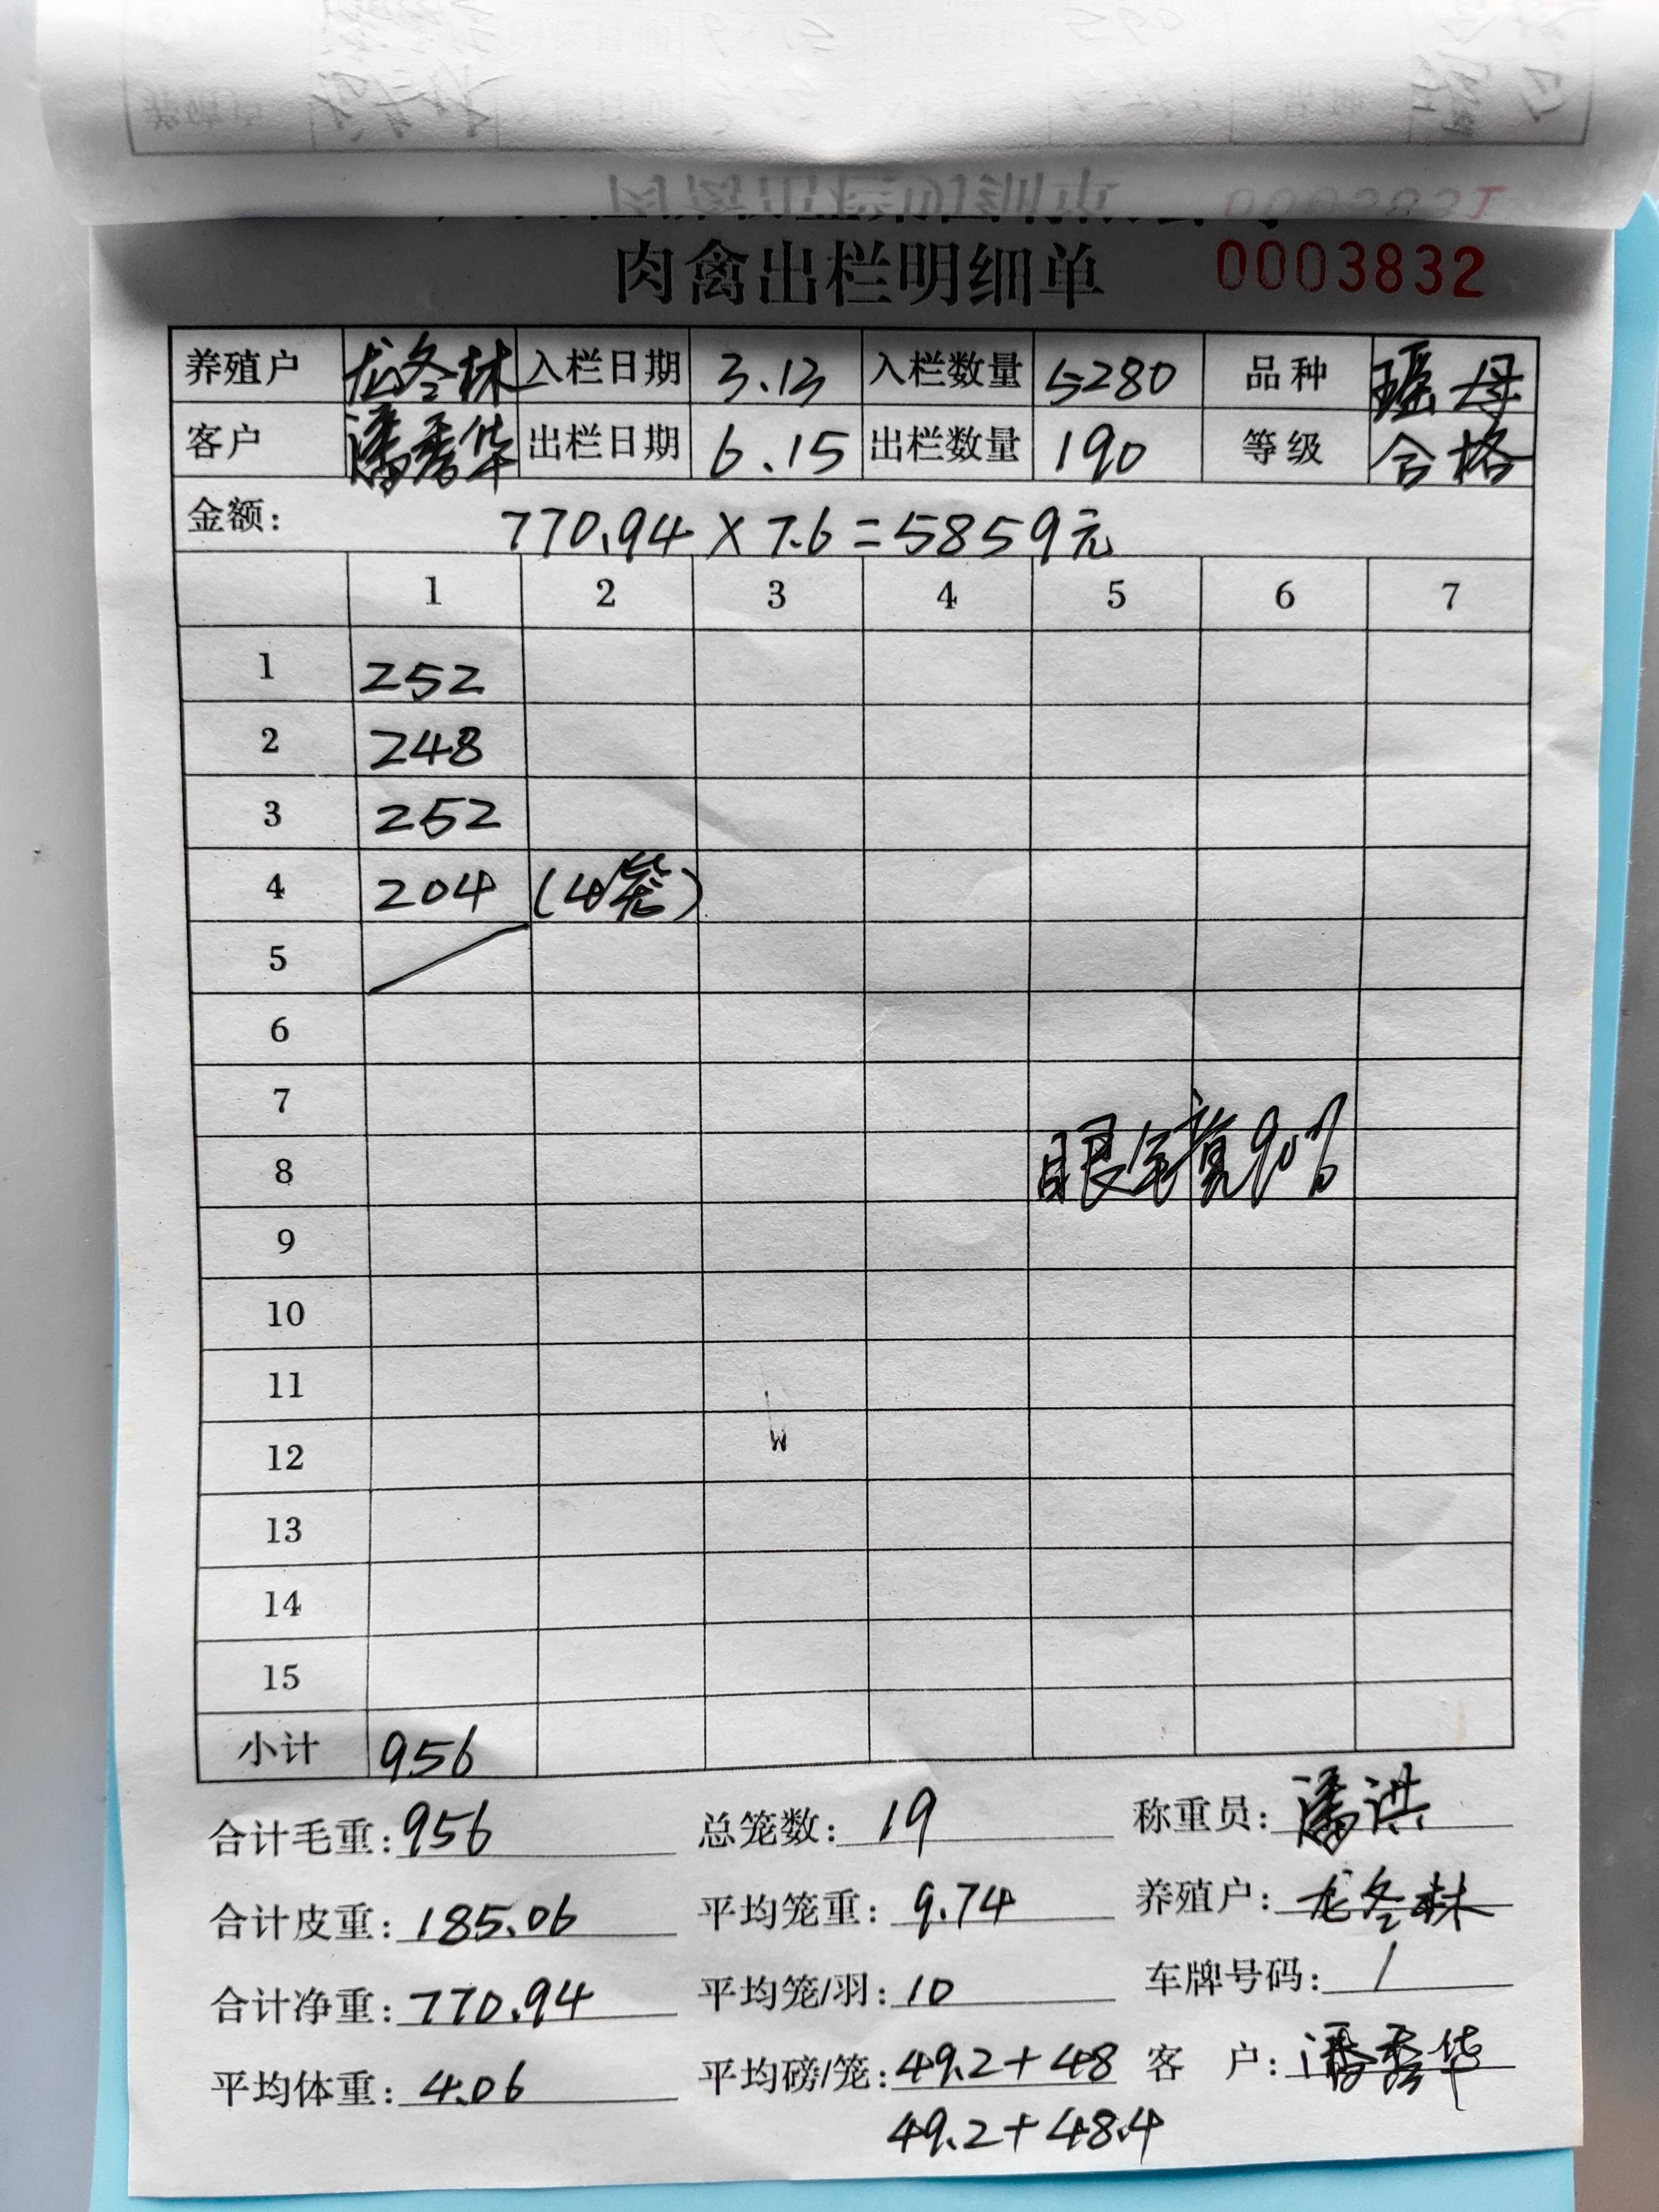 肉禽出栏明细单 0003832
养殖户 龙冬林 入栏日期 3.13 入栏数量 5280 品种 瑶母
客户 潘秀华 出栏日期 6.15 出栏数量 190 等级 合格
金额: 770.94 × 7.6 = 5859元
1 2 3 4 5 6 7
1 252
2 248
3 252
4 204 (4笼)
5
6
7
8 眼 90%
9
10
11
12
13
14
15
小计 956
合计毛重: 956 总笼数: 19 称重员: 潘洪
合计皮重: 185.06 平均笼重: 9.74 养殖户: 龙冬林
合计净重: 770.94 平均笼/羽: 10 车牌号码: /
平均体重: 4.06 平均磅/笼: 49.2+48 客 户: 潘秀华
49.2+48.4